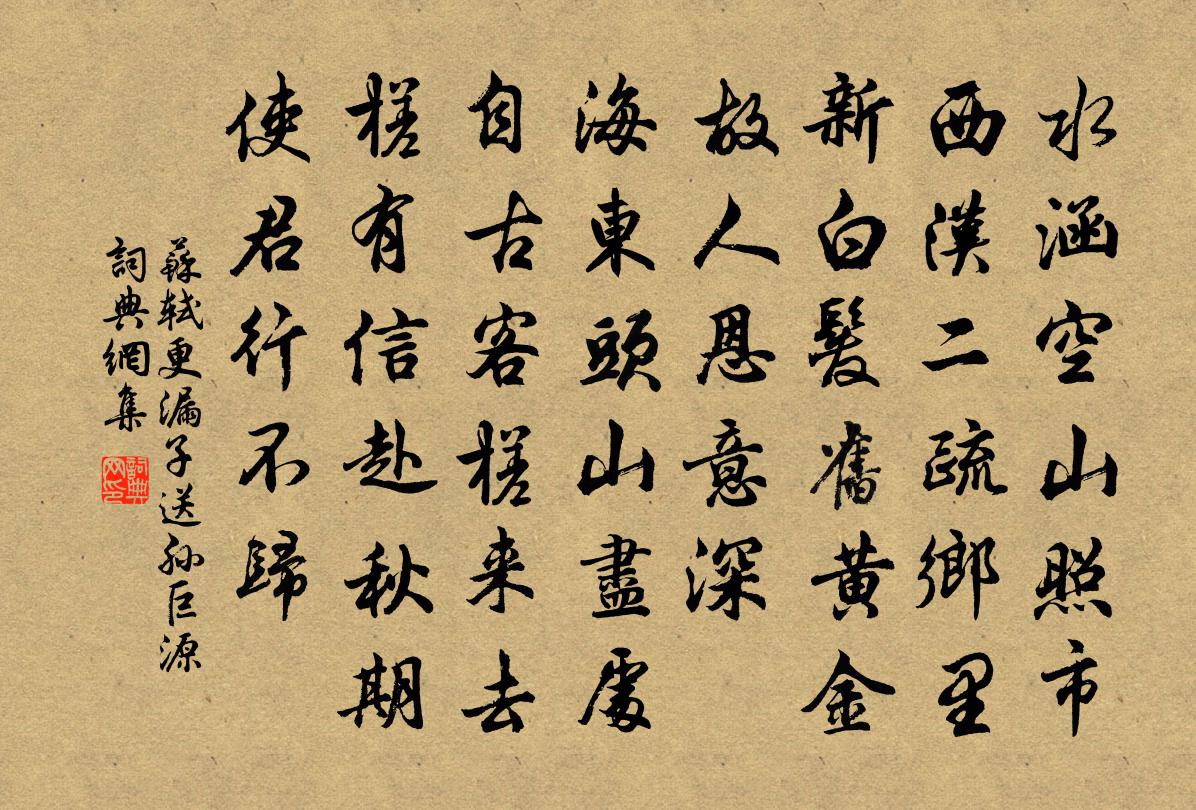 水涵空山照市
西漢二疏鄉里
新白髮舊黃金
故人恩意深
海東頭山盡處
自古客槎来去
槎有信赴秋期
使君行不歸
蘇軾更漏子送孙巨源
詞典網集
詞典网印